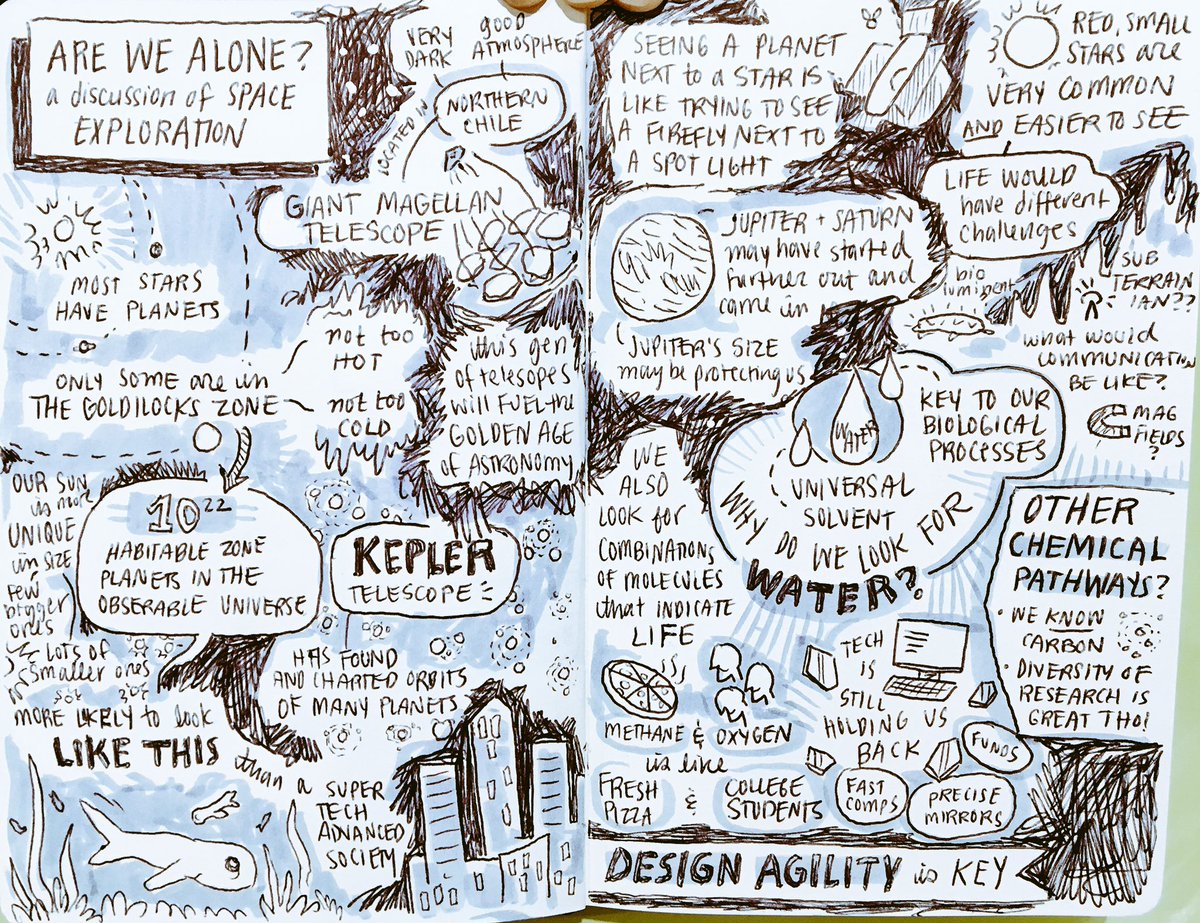 ARE WE ALONE?
a discussion of SPACE
EXPLORATION
VERY
DARK
good
ATMOSPHERE
LOCATED IN
NORTHERN
CHILE
GIANT MAGELLAN
TELESCOPE
MOST STARS
HAVE PLANETS
ONLY SOME are in
THE GOLDILOCKS ZONE
not too
HOT
not too
COLD
this gen
of telesopes
will FUEL the
GOLDEN AGE
of ASTRONOMY
OUR SUN
is more
UNIQUE
in SIZE
few
bigger
ones
lots of
smaller ones
10²²
HABITABLE ZONE
PLANETS IN THE
OBSERABLE UNIVERSE
KEPLER
TELESCOPE
HAS FOUND
AND CHARTED ORBITS
OF MANY PLANETS
MORE LIKELY to look
LIKE THIS
than a
SUPER
TECH
ADVANCED
SOCIETY
SEEING A PLANET
NEXT to a STAR IS
LIKE TRYING TO SEE
A FIREFLY NEXT TO
A SPOT LIGHT
RED, SMALL
STARS are
VERY COMMON
AND EASIER TO SEE
LIFE WOULD
have different
challenges
JUPITER + SATURN
may have started
further out and
came in
JUPITER'S SIZE
may be protecting us
bio
lumipent
SUB
TERRAIN
IAN??
what would
COMMUNICATION
BE LIKE?
MAG
FIELDS
?
WATER
KEY TO OUR
BIOLOGICAL
PROCESSES
UNIVERSAL
SOLVENT
WHY DO WE LOOK FOR
WATER?
WE
ALSO
LOOK for
COMBINATIONS
OF MOLECULES
that INDICATE
LIFE
METHANE & OXYGEN
is like
FRESH
PIZZA
&
COLLEGE
STUDENTS
TECH
IS
STILL
HOLDING US
BACK
FUNDS
FAST
COMPS
PRECISE
MIRRORS
OTHER
CHEMICAL
PATHWAYS?
• WE KNOW
CARBON
• DIVERSITY OF
RESEARCH IS
GREAT THO!
DESIGN AGILITY is KEY